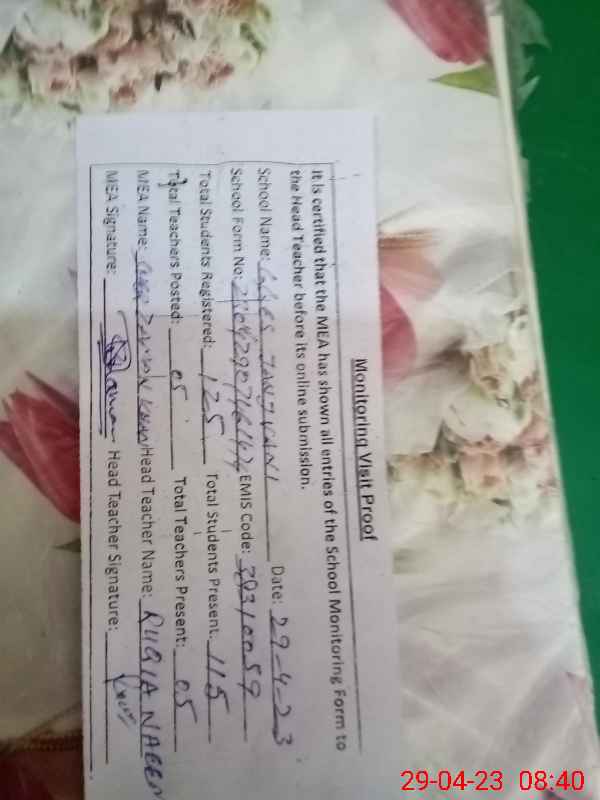 Monitoring Visit Proof
It is certified that the MEA has shown all entries of the School Monitoring Form to
the Head Teacher before its online submission.
School Name: GGPS Date: 29-4-23
School Form No: EMIS Code: 38310059
Total Students Registered: 125 Total Students Present: 115
Total Teachers Posted: 05 Total Teachers Present: 05
MEA Name: Khan Head Teacher Name: RUQIA NAEEM
MEA Signature: Head Teacher Signature:
29-04-23 08:40